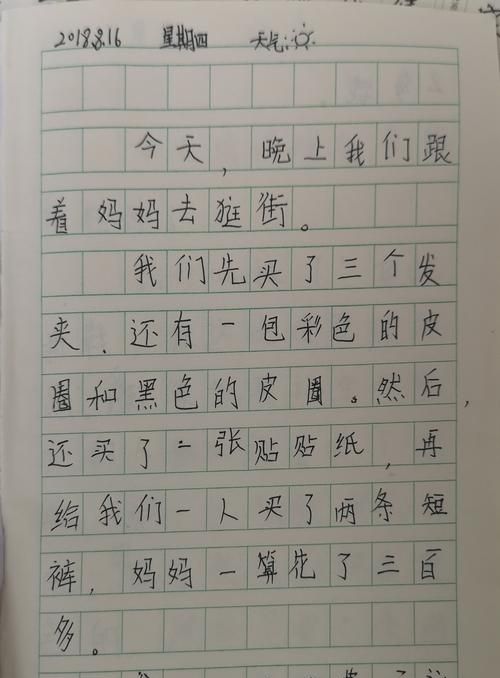 2018.8.16 星期四 天气:
今天,晚上我们跟
着妈妈去逛街。
我们先买了三个发
夹.还有一包彩色的皮
圈和黑色的皮圈。然后,
还买了一张贴贴纸,再
给我们一人买了两条短
裤,妈妈一算花了三百
多。